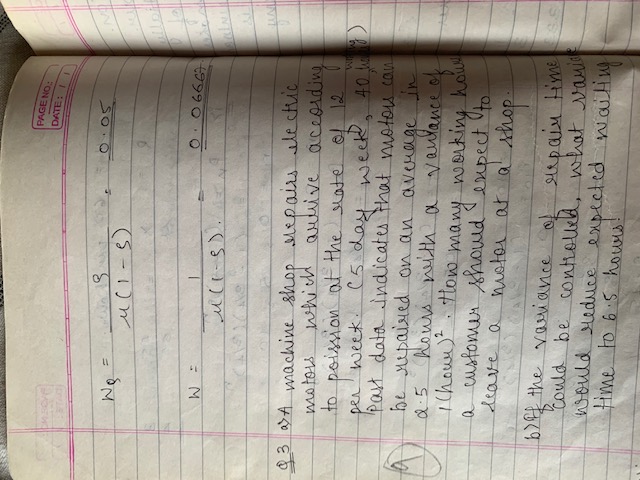 PAGE NO.:
DATE: / /
WQ = ρ / μ(1-ρ) = 0.05
W = 1 / μ(1-ρ). = 0.06667
Q3 a) A machine shop repairs electric
motors which arrive according
to poission at the rate of 12
per week. (5 day week, 40 working hours)
Past data indicates that motors can
be repaired on an average in
2.5 hours with a variance of
1(hour)². How many working hours
a customer should expect to
leave a motor at a shop.
9
b) If the variance of repair time
could be controlled, what variance
would reduce expected waiting
time to 6.5 hours.